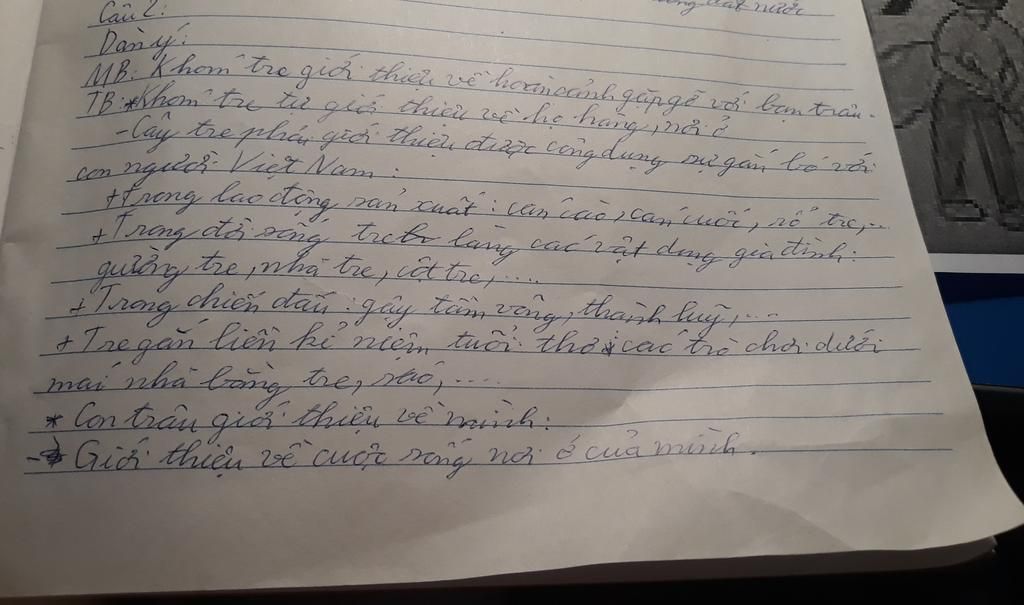 đất nước
Câu 2:
Dàn ý:
MB: Khóm tre giới thiệu về hoàn cảnh gặp gỡ với bạn trâu.
TB: *Khóm tre tự giới thiệu về họ hàng, nơi ở
- Cây tre phải giới thiệu được công dụng sự gắn bó với
con người Việt Nam:
+ Trong lao động sản xuất: cán cào, cán cuốc, rổ tre,...
+ Trong đời sống tre làng các vật dụng gia đình:
giường tre, nhà tre, cột tre,....
+ Trong chiến đấu: gậy tầm vông, thành luỹ,...
+ Tre gắn liền kỉ niệm tuổi thơ các trò chơi dưới
mái nhà bằng tre, sáo,....
* Con trâu giới thiệu về mình:
- Giới thiệu về cuộc sống nơi ở của mình.